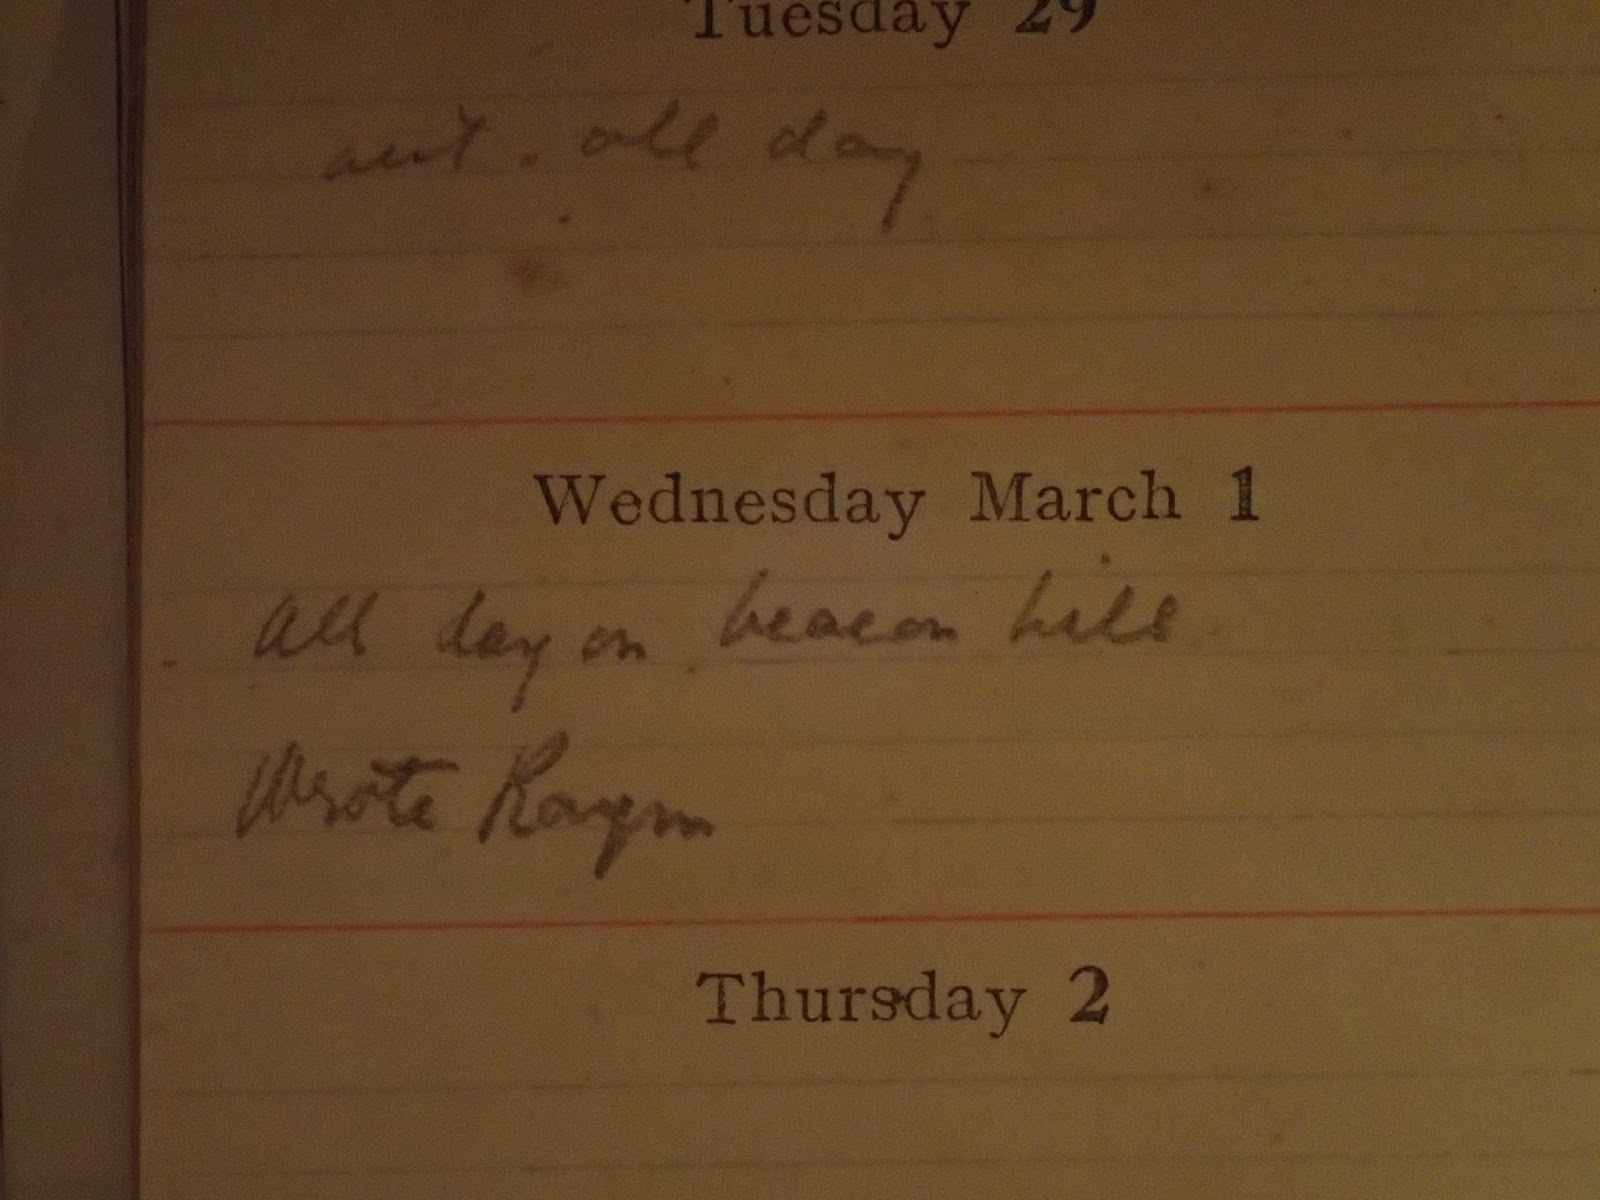 Tuesday 29
out. all day
Wednesday March 1
All day on beacon hill
Wrote
Thursday 2